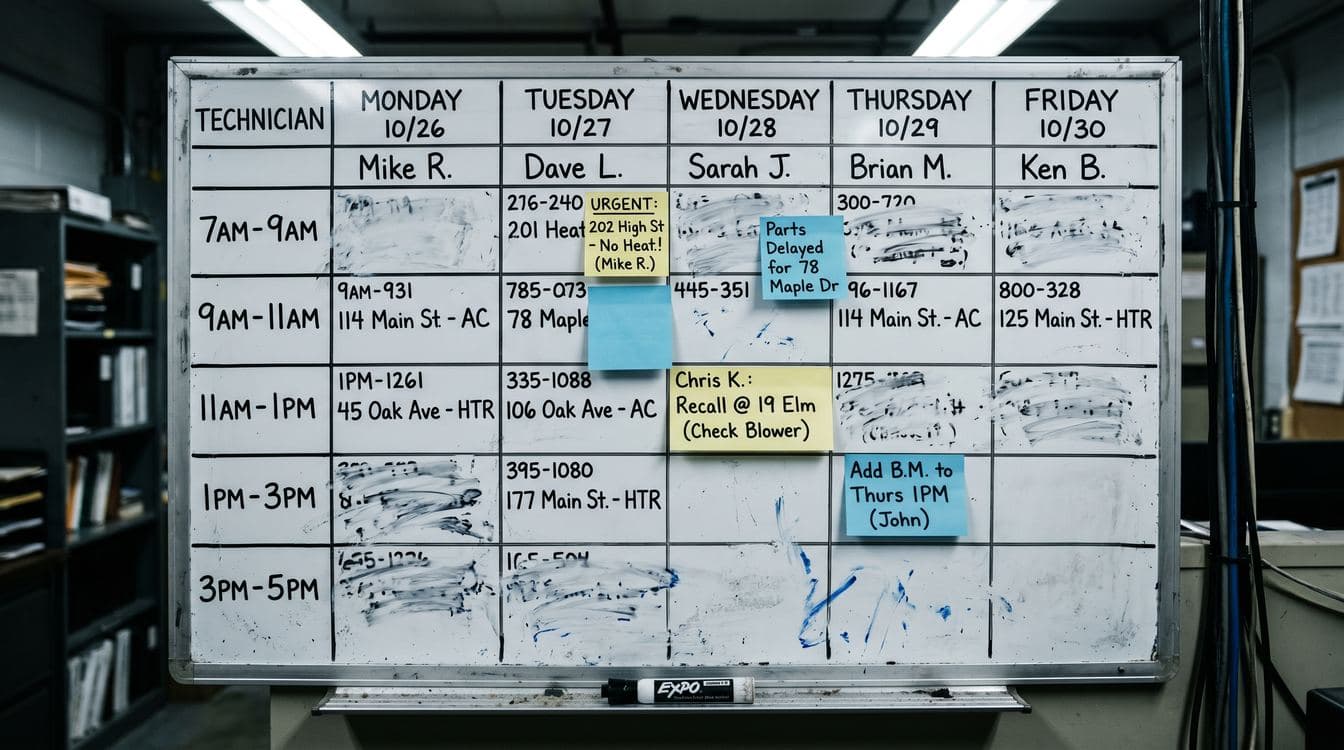 TECHNICIAN
MONDAY
10/26
TUESDAY
10/27
WEDNESDAY
10/28
THURSDAY
10/29
FRIDAY
10/30
Mike R.
Dave L.
Sarah J.
Brian M.
Ken B.
7AM-9AM
276-240
201 Heat
URGENT:
202 High St
- No Heat!
(Mike R.)
Parts
Delayed
for 78
Maple Dr
9AM-11AM
9AM-931
114 Main St. - AC
785-073
78 Maple
445-351
96-1167
114 Main St. - AC
800-328
125 Main St. - HTR
11AM-1PM
1PM-1261
45 Oak Ave - HTR
335-1088
106 Oak Ave - AC
Chris K.:
Recall @ 19 Elm
(Check Blower)
1PM-3PM
395-1080
177 Main St. - HTR
Add B.M. to
Thurs 1PM
(John)
3PM-5PM
EXPO